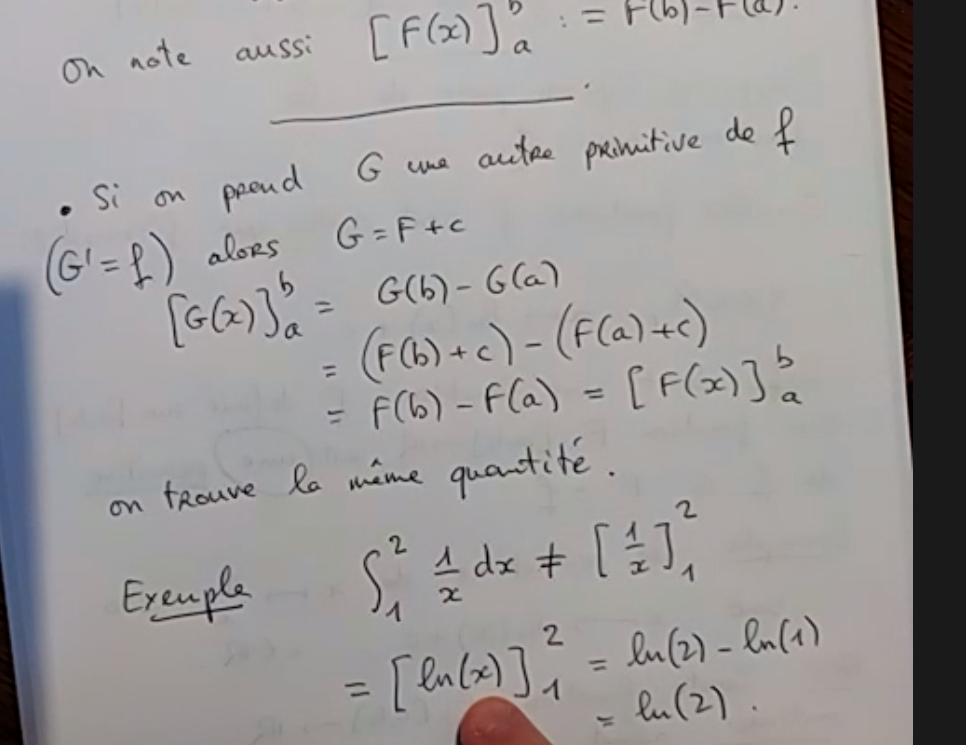 on note aussi [F(x)]_a^b := F(b)-F(a).
• Si on prend G une autre primitive de f
(G'=f) alors G=F+c
[G(x)]_a^b = G(b)-G(a)
= (F(b)+c)-(F(a)+c)
= F(b)-F(a) = [F(x)]_a^b
on trouve la même quantité.
Exemple ∫_1^2 1/x dx ≠ [1/x]_1^2
= [ln(x)]_1^2 = ln(2)-ln(1)
= ln(2).